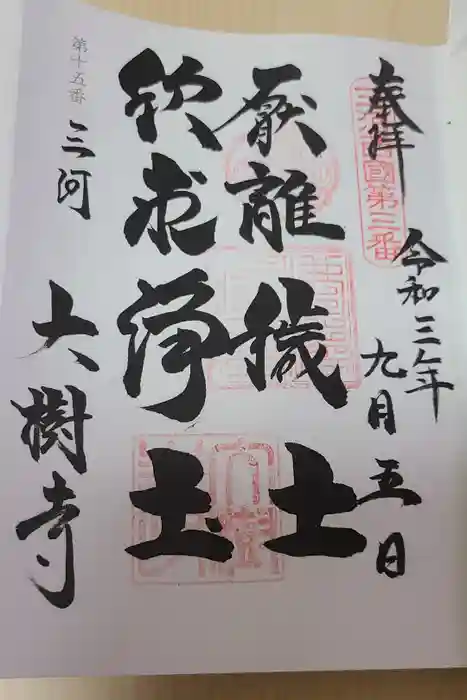 奉拝
令和三年九月五日
厭離穢土
欣求浄土
第十五番
三河
大樹寺